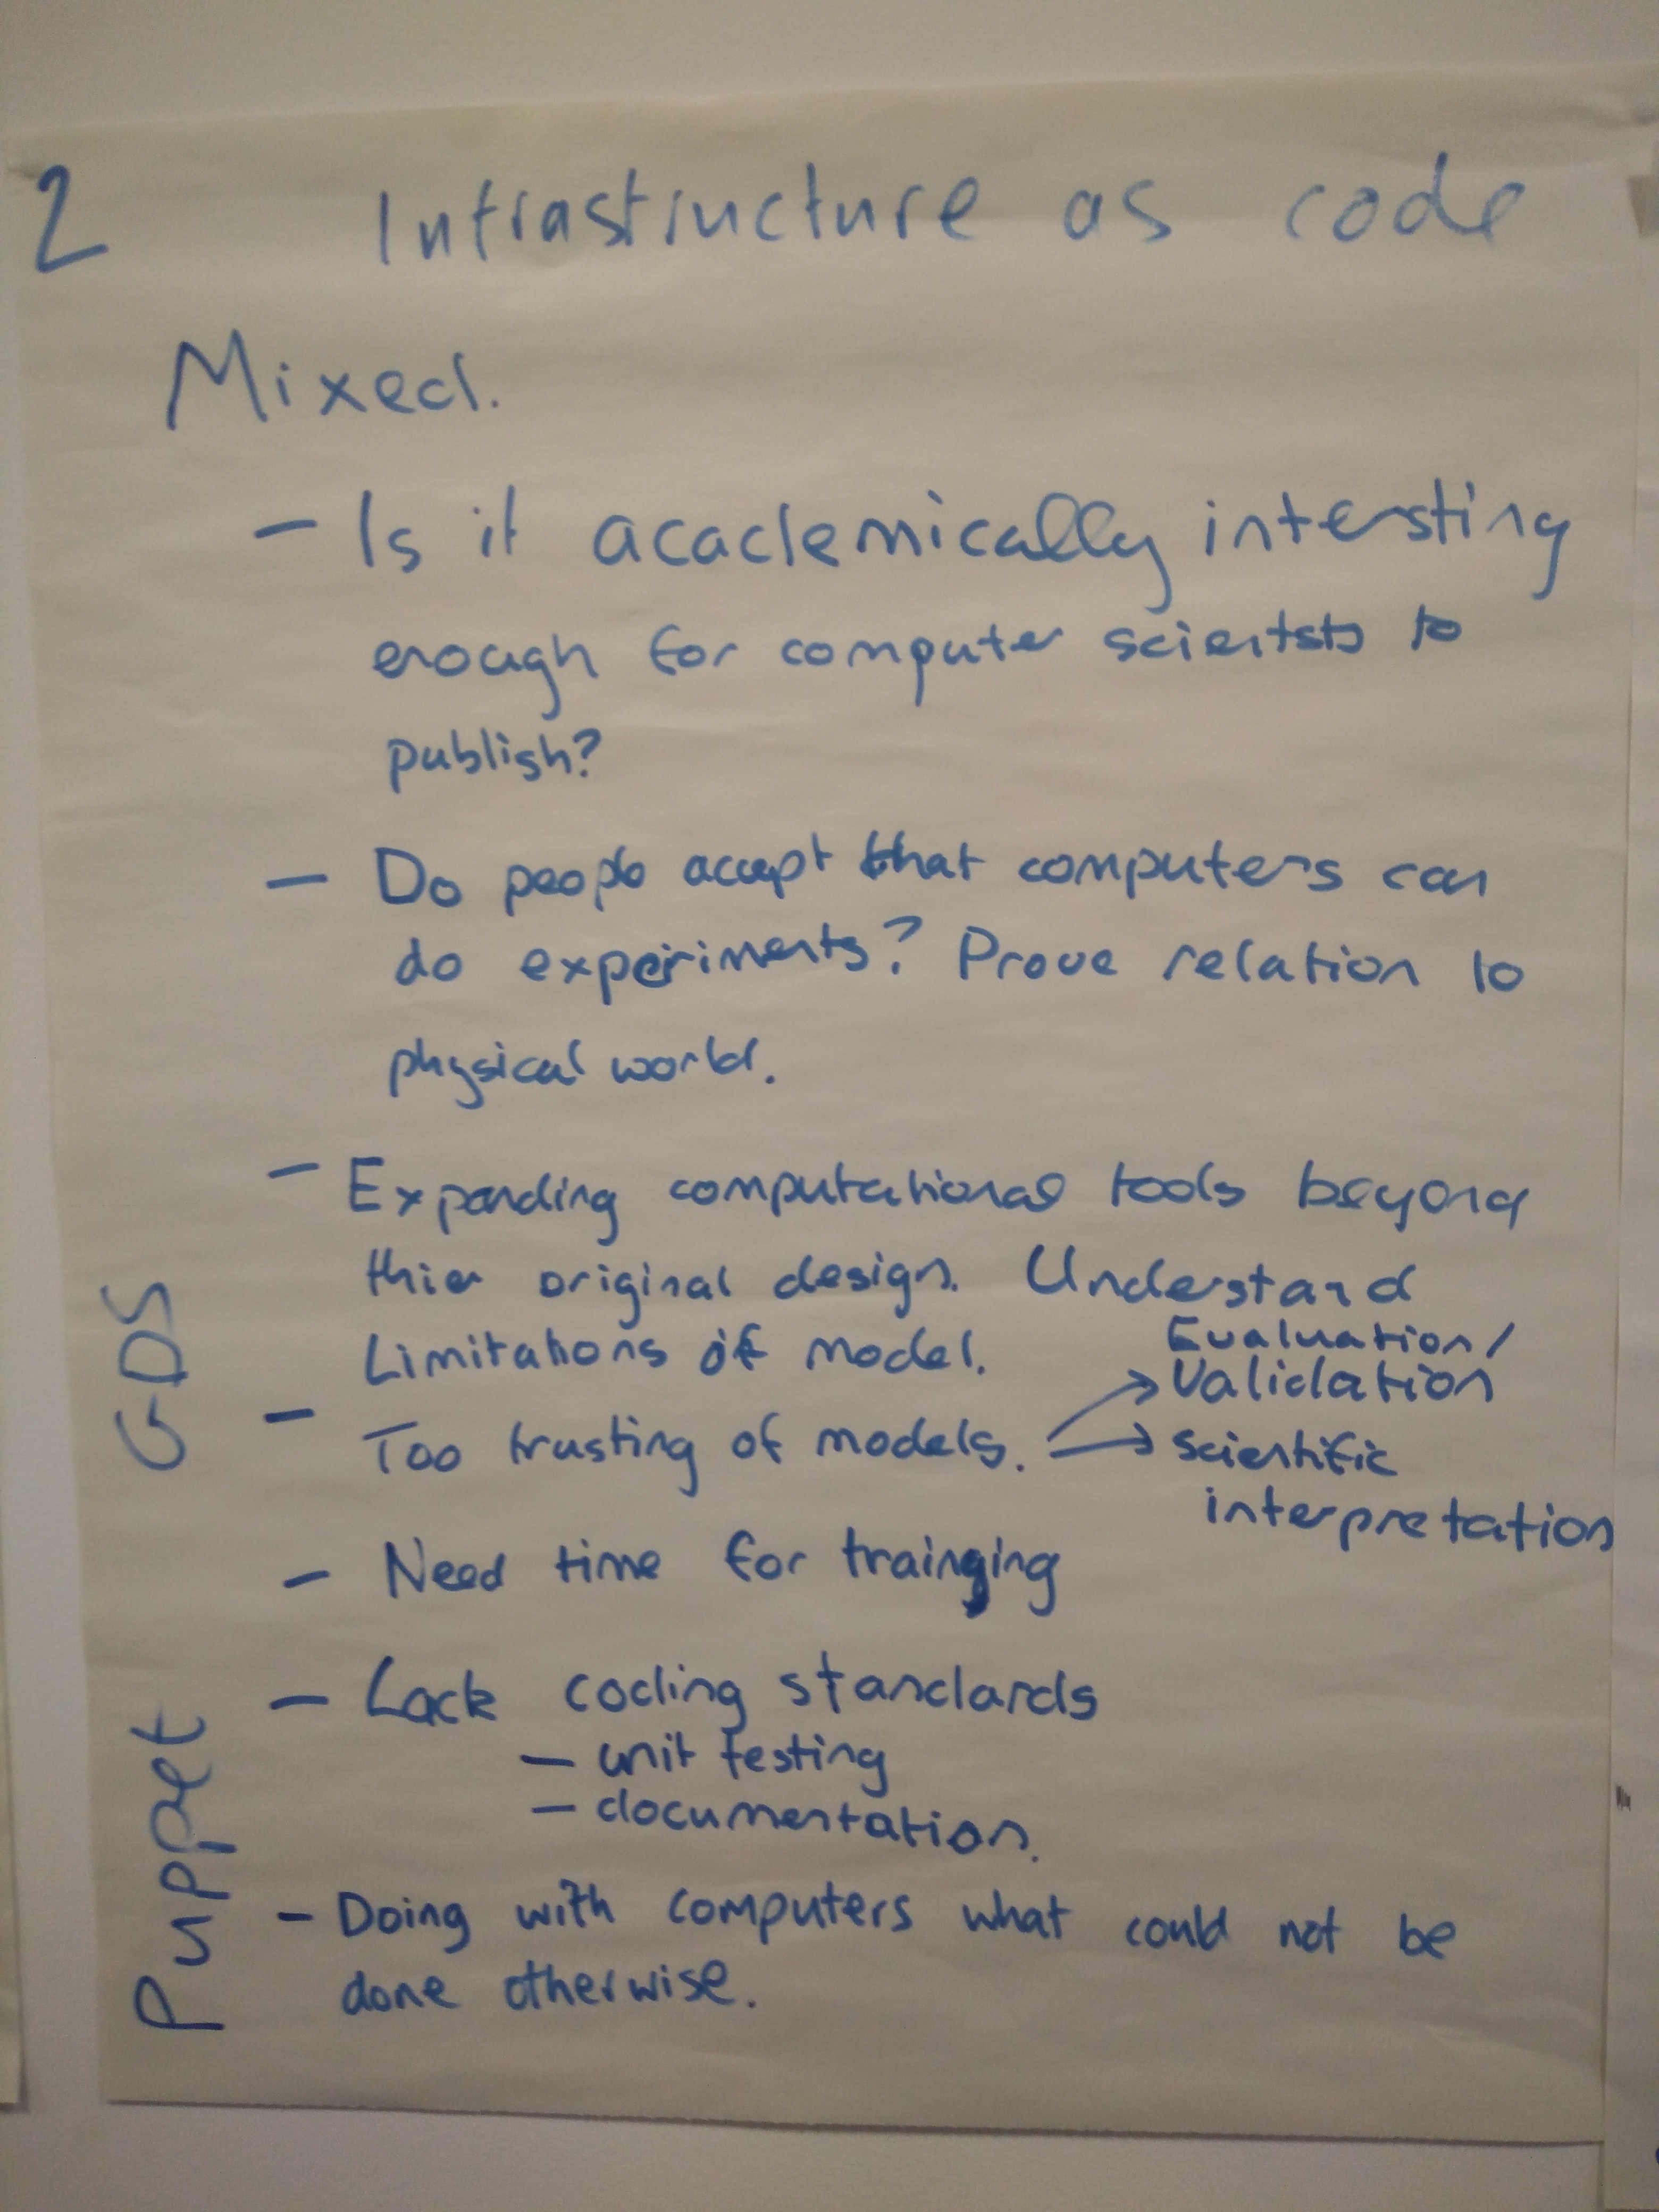 2 Infrastructure as code
Mixed.
- Is it academically intersting
enough for computer scientsts to
publish?
- Do people accept that computers can
do experiments? Prove relation to
physical world.
- Expanding computational tools beyond
thier original design. Understand
Limitations of model.
- Too trusting of models. → Evaluation/
Validation
→ scientific
interpretation
- Need time for trainging
- Lack coding standards
- unit testing
- documentation.
- Doing with computers what could not be
done otherwise.
GDS
Puppet